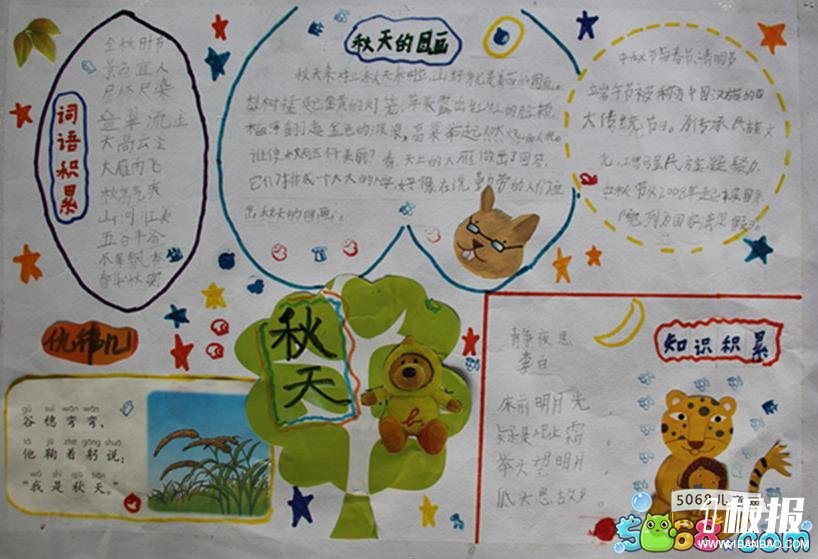 词语积累
金秋时节
景色宜人
层林尽染
叠翠流金
天高云淡
大雁南飞
秋高气爽
山河壮美
五谷丰登
春华秋实
秋天的图画
秋天来啦,秋天来啦,山野就是美丽的图画。
梨树挂起金黄的灯笼,苹果露出红红的脸颊,
稻海翻起金色的波浪,高粱举起燃烧的火把。
谁使秋天这样美丽?看,天上的大雁做出了回答,
它们排成一个大大的人字,好像在说勤劳的人们画
出秋天的图画。
中秋节与春节、清明节
、端午节被称为中国汉族的四
大传统节日。为传承民族文
化,增强民族凝聚力,
中秋节从2008年起被国家
列为国家法定假日。
秋天
gǔ suì wān wān
谷穗弯弯,
tā jū zhe gōng shuō
他鞠着躬说:
wǒ shì qiū tiān
“我是秋天。”
知识积累
静夜思
李白
床前明月光,
疑是地上霜。
举头望明月,
低头思故乡。
5068儿童网
5068.com
1板报
WWW.1BANBAO.COM